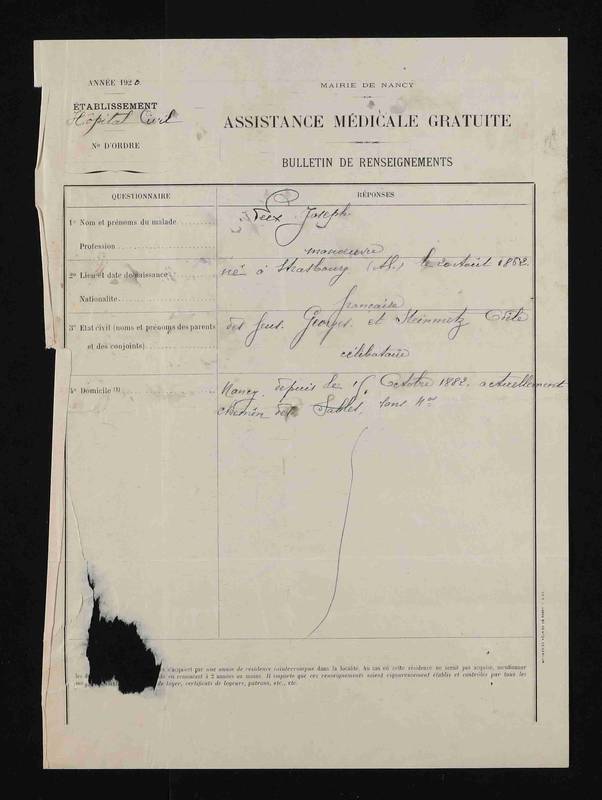 ANNÉE 1920.
MAIRIE DE NANCY
ÉTABLISSEMENT
Hôpital Civil
ASSISTANCE MÉDICALE GRATUITE
No D'ORDRE
BULLETIN DE RENSEIGNEMENTS
QUESTIONNAIRE
RÉPONSES
1o Nom et prénoms du malade
Joseph
Profession
manœuvre
2o Lieu et date de naissance
né à Strasbourg (Al.) le 20 Août 1852.
Nationalité
française
3o Etat civil (noms et prénoms des parents
des feus. Georges et Steinmetz
et des conjoints)
célibataire
4o Domicile (1)
Nancy. depuis le 15 Octobre 1882. actuellement
chemin des Sables, sans No
s'acquiert par une année de résidence ininterrompue dans la localité. Au cas où cette résidence ne serait pas acquise, mentionner
les en remontant à 2 années au moins. Il importe que ces renseignements soient rigoureusement établis et contrôlés par tous les
de loyer, certificats de logeurs, patrons, etc., etc.